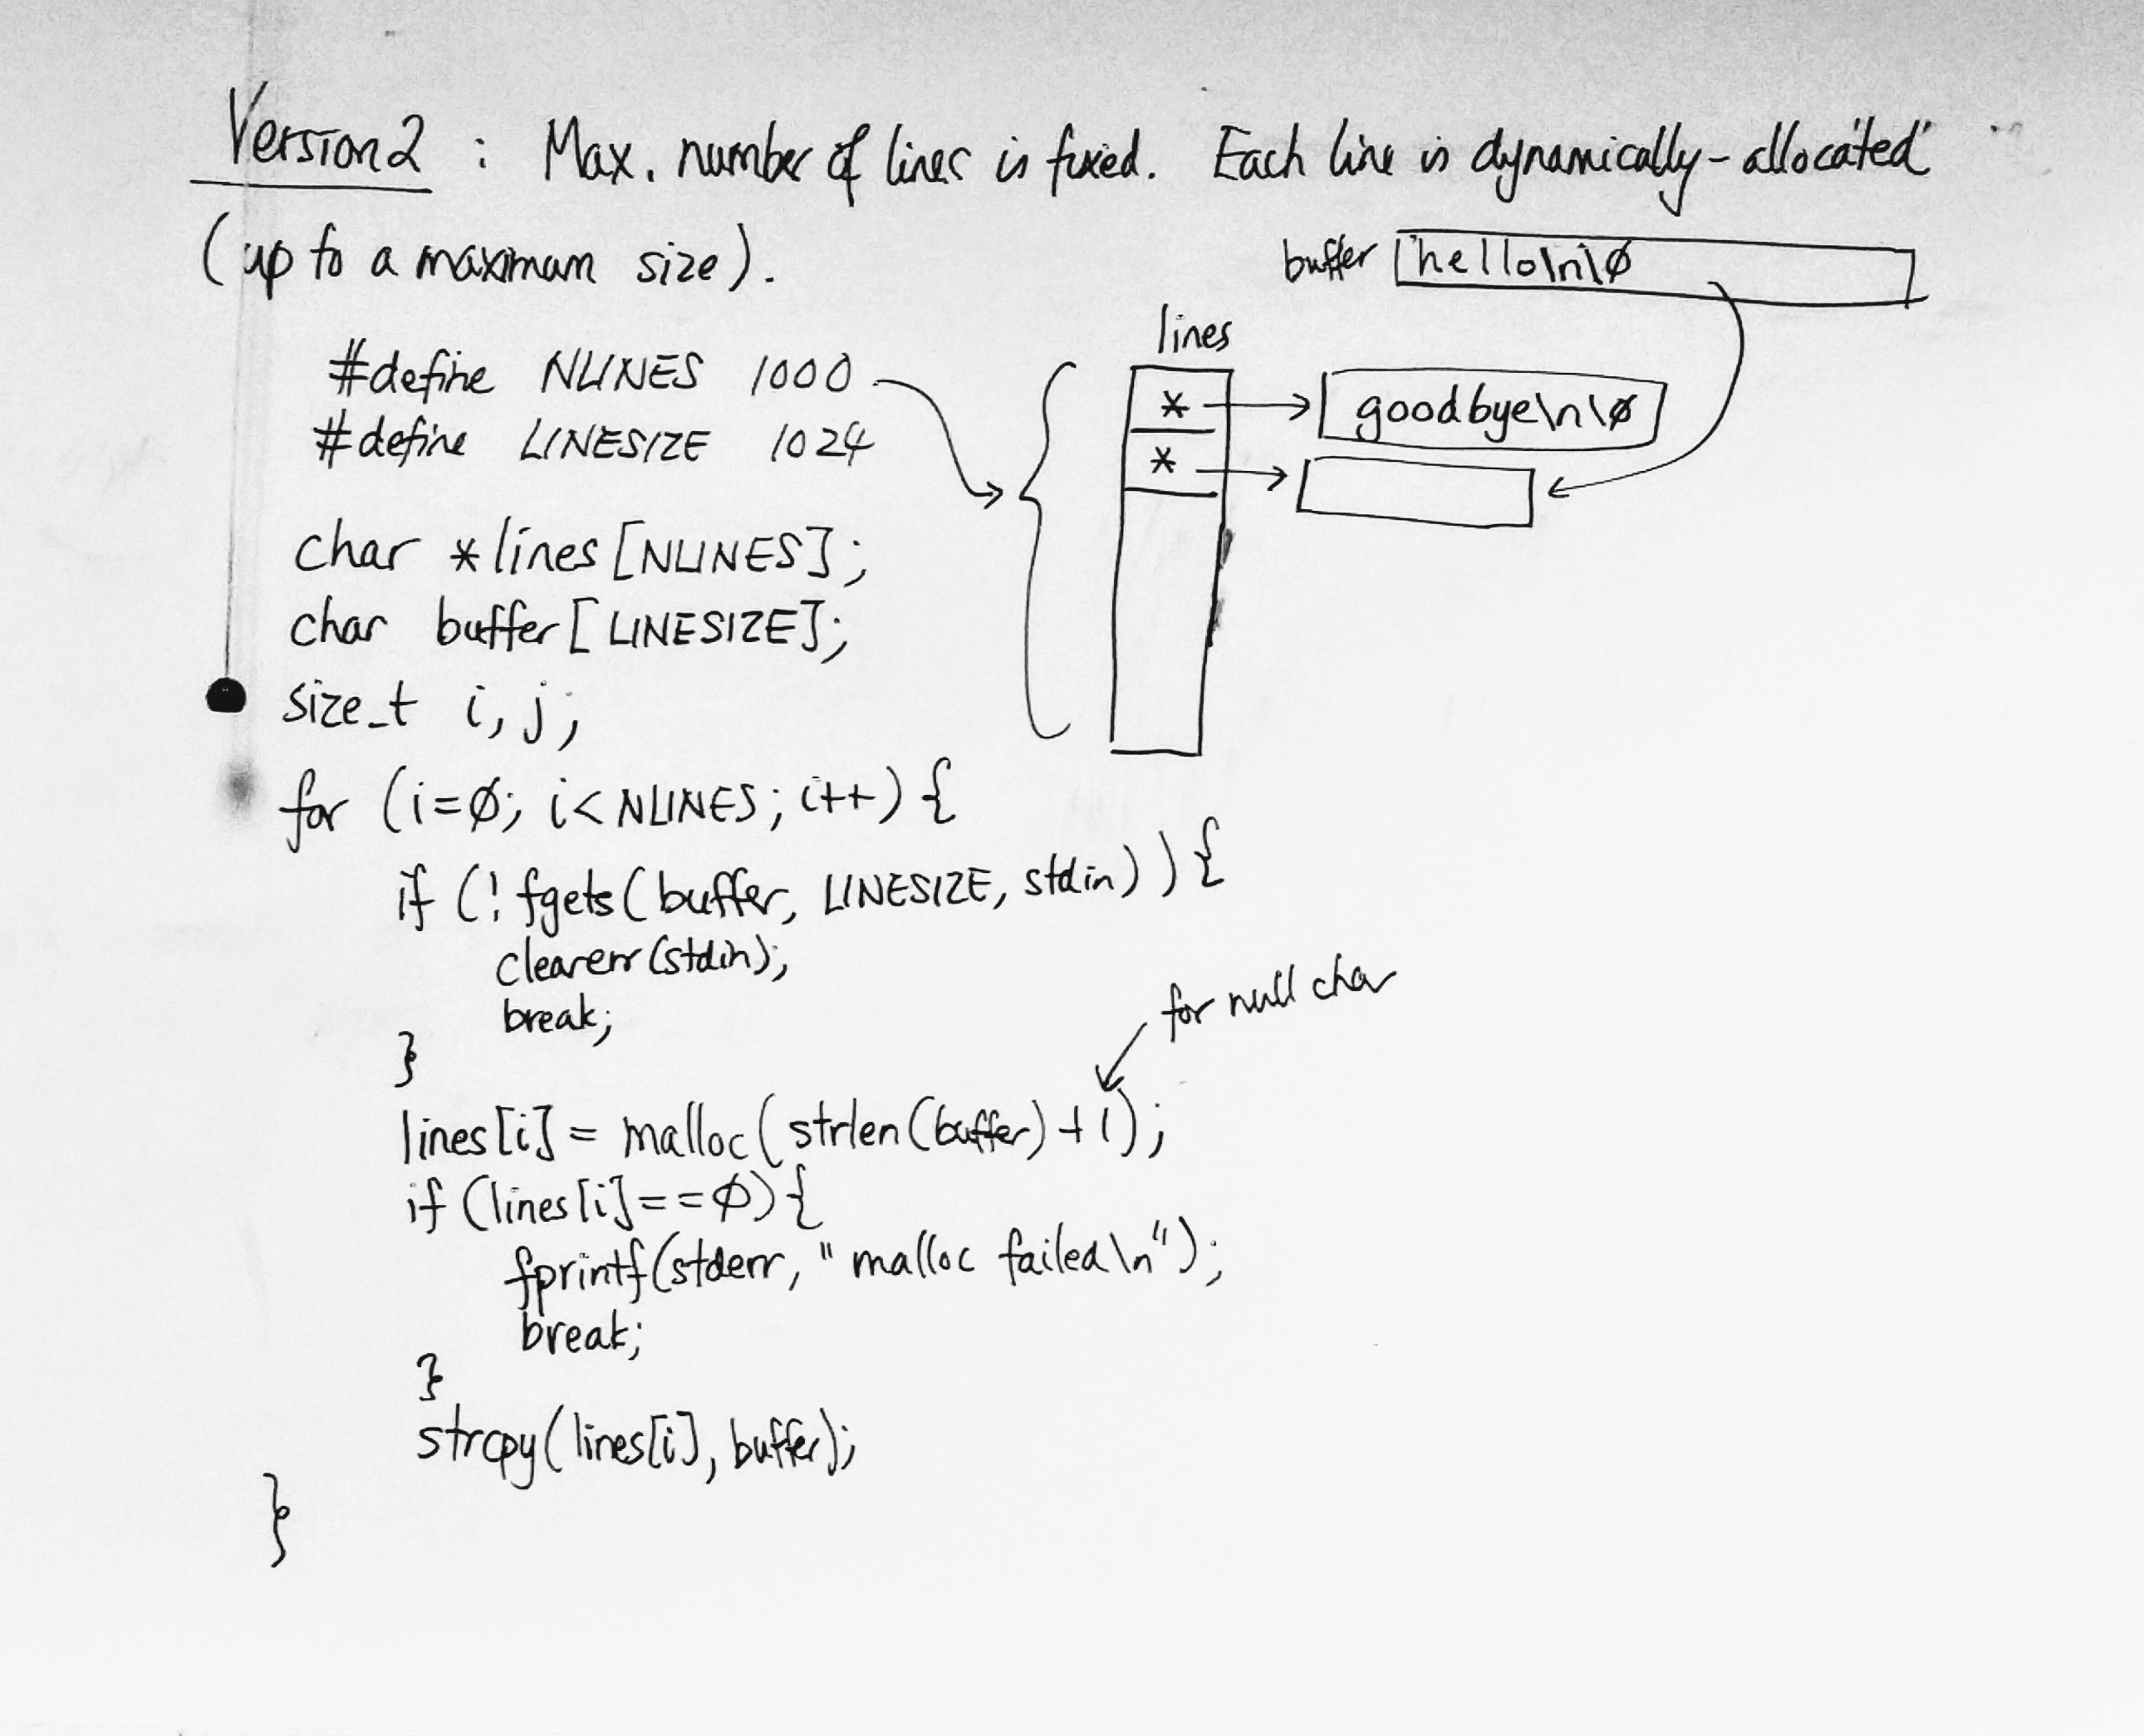 Version 2 : Max. number of lines is fixed. Each line is dynamically-allocated
(up to a maximum size).
buffer hello\n\0
lines
#define NLINES 1000
* goodbye\n\0
#define LINESIZE 1024
*
char *lines[NLINES];
char buffer[LINESIZE];
size_t i, j;
for (i=0; i<NLINES; i++) {
if (!fgets(buffer, LINESIZE, stdin)) {
clearerr(stdin);
break;
}
for null char
lines[i] = malloc(strlen(buffer)+1);
if (lines[i]==0) {
fprintf(stderr, "malloc failed\n");
break;
}
strcpy(lines[i], buffer);
}